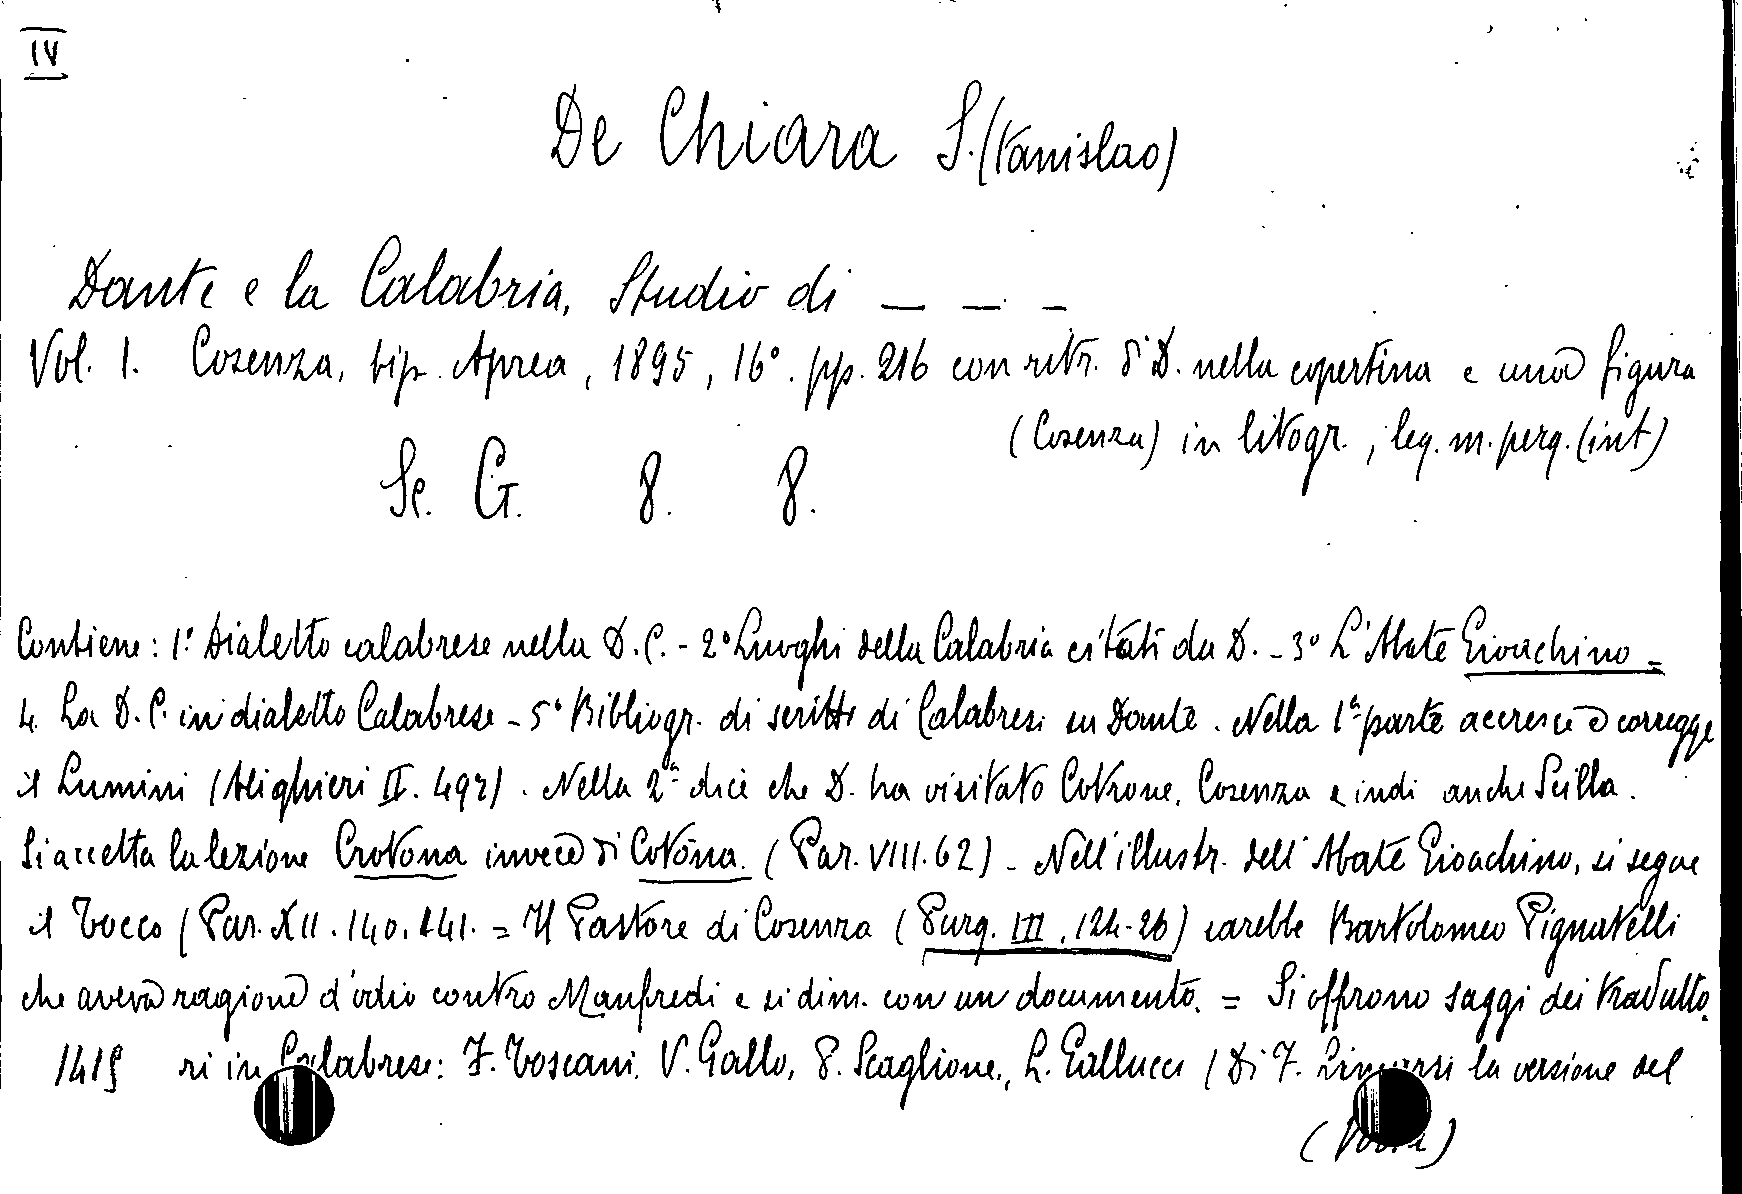 IV
De Chiara S.(tanislao)
Dante e la Calabria, Studio di — — –
Vol. I. Cosenza, tip. Aprea, 1895, 16°. pp. 216 con ritr. di D. nella copertina e una figura
(Cosenza) in litogr., leg. m. perg. (int)
Sc. G. 8. 8.
Contiene: 1° Dialetto calabrese nella D.C. - 2° Luoghi della Calabria citati da D. - 3° L'Abate Gioachino =
4. La D.C. in dialetto Calabrese - 5° Bibliogr. di scritti di Calabresi su Dante. Nella 1ª parte accresce e corregge
il Lumini (Alighieri II. 492). Nella 2ª dice che D. ha visitato Cotrone, Cosenza e indi anche Scilla.
Si accetta la lezione Crotona invece di Cotona. (Par. VIII. 62) - Nell'illustr. dell'Abate Gioachino, si segue
il Tocco (Par. XII. 140. 141. = Il Pastore di Cosenza (Purg. III, 124-26) sarebbe Bartolomeo Pignatelli
che aveva ragione d'odio contro Manfredi e si dim. con un documento. = Si offrono saggi dei tradutto.
1415 ri in Calabrese: F. Toscani, V. Gallo, S. Scaglione, L. Gallucci (Di F. Limarsi la versione del